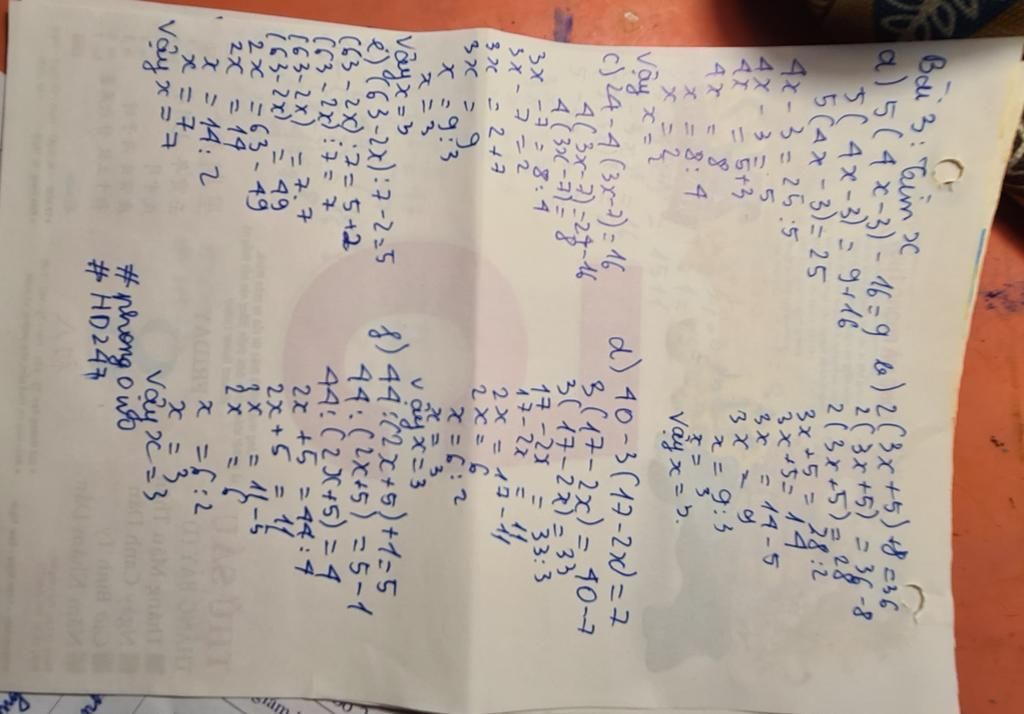 Bài 3: Tìm x
a) 5(4x-3)-16=9
5(4x-3)=9+16
5(4x-3)=25
4x-3=25:5
4x-3=5
4x=5+3
4x=8
x=8:4
x=2
Vậy x=2
b) 2(3x+5)+8=36
2(3x+5)=36-8
2(3x+5)=28
3x+5=28:2
3x+5=14
3x=14-5
3x=9
x=9:3
x=3
Vậy x=3.
c) 24-4(3x-7)=16
4(3x-7)=24-16
4(3x-7)=8
3x-7=8:4
3x-7=2
3x=2+7
3x=9
x=9:3
x=3
Vậy x=3
d) 40-3(17-2x)=7
3(17-2x)=40-7
3(17-2x)=33
17-2x=33:3
17-2x=11
2x=17-11
2x=6
x=6:2
x=3
Vậy x=3
e) (63-2x):7-2=5
(63-2x):7=5+2
(63-2x):7=7
(63-2x)=7.7
(63-2x)=49
2x=63-49
2x=14
x=14:2
x=7
Vậy x=7
f) 44:(2x+5)+1=5
44:(2x+5)=5-1
44:(2x+5)=4
2x+5=44:4
2x+5=11
2x=11-5
2x=6
x=6:2
x=3
Vậy x=3
#HD247